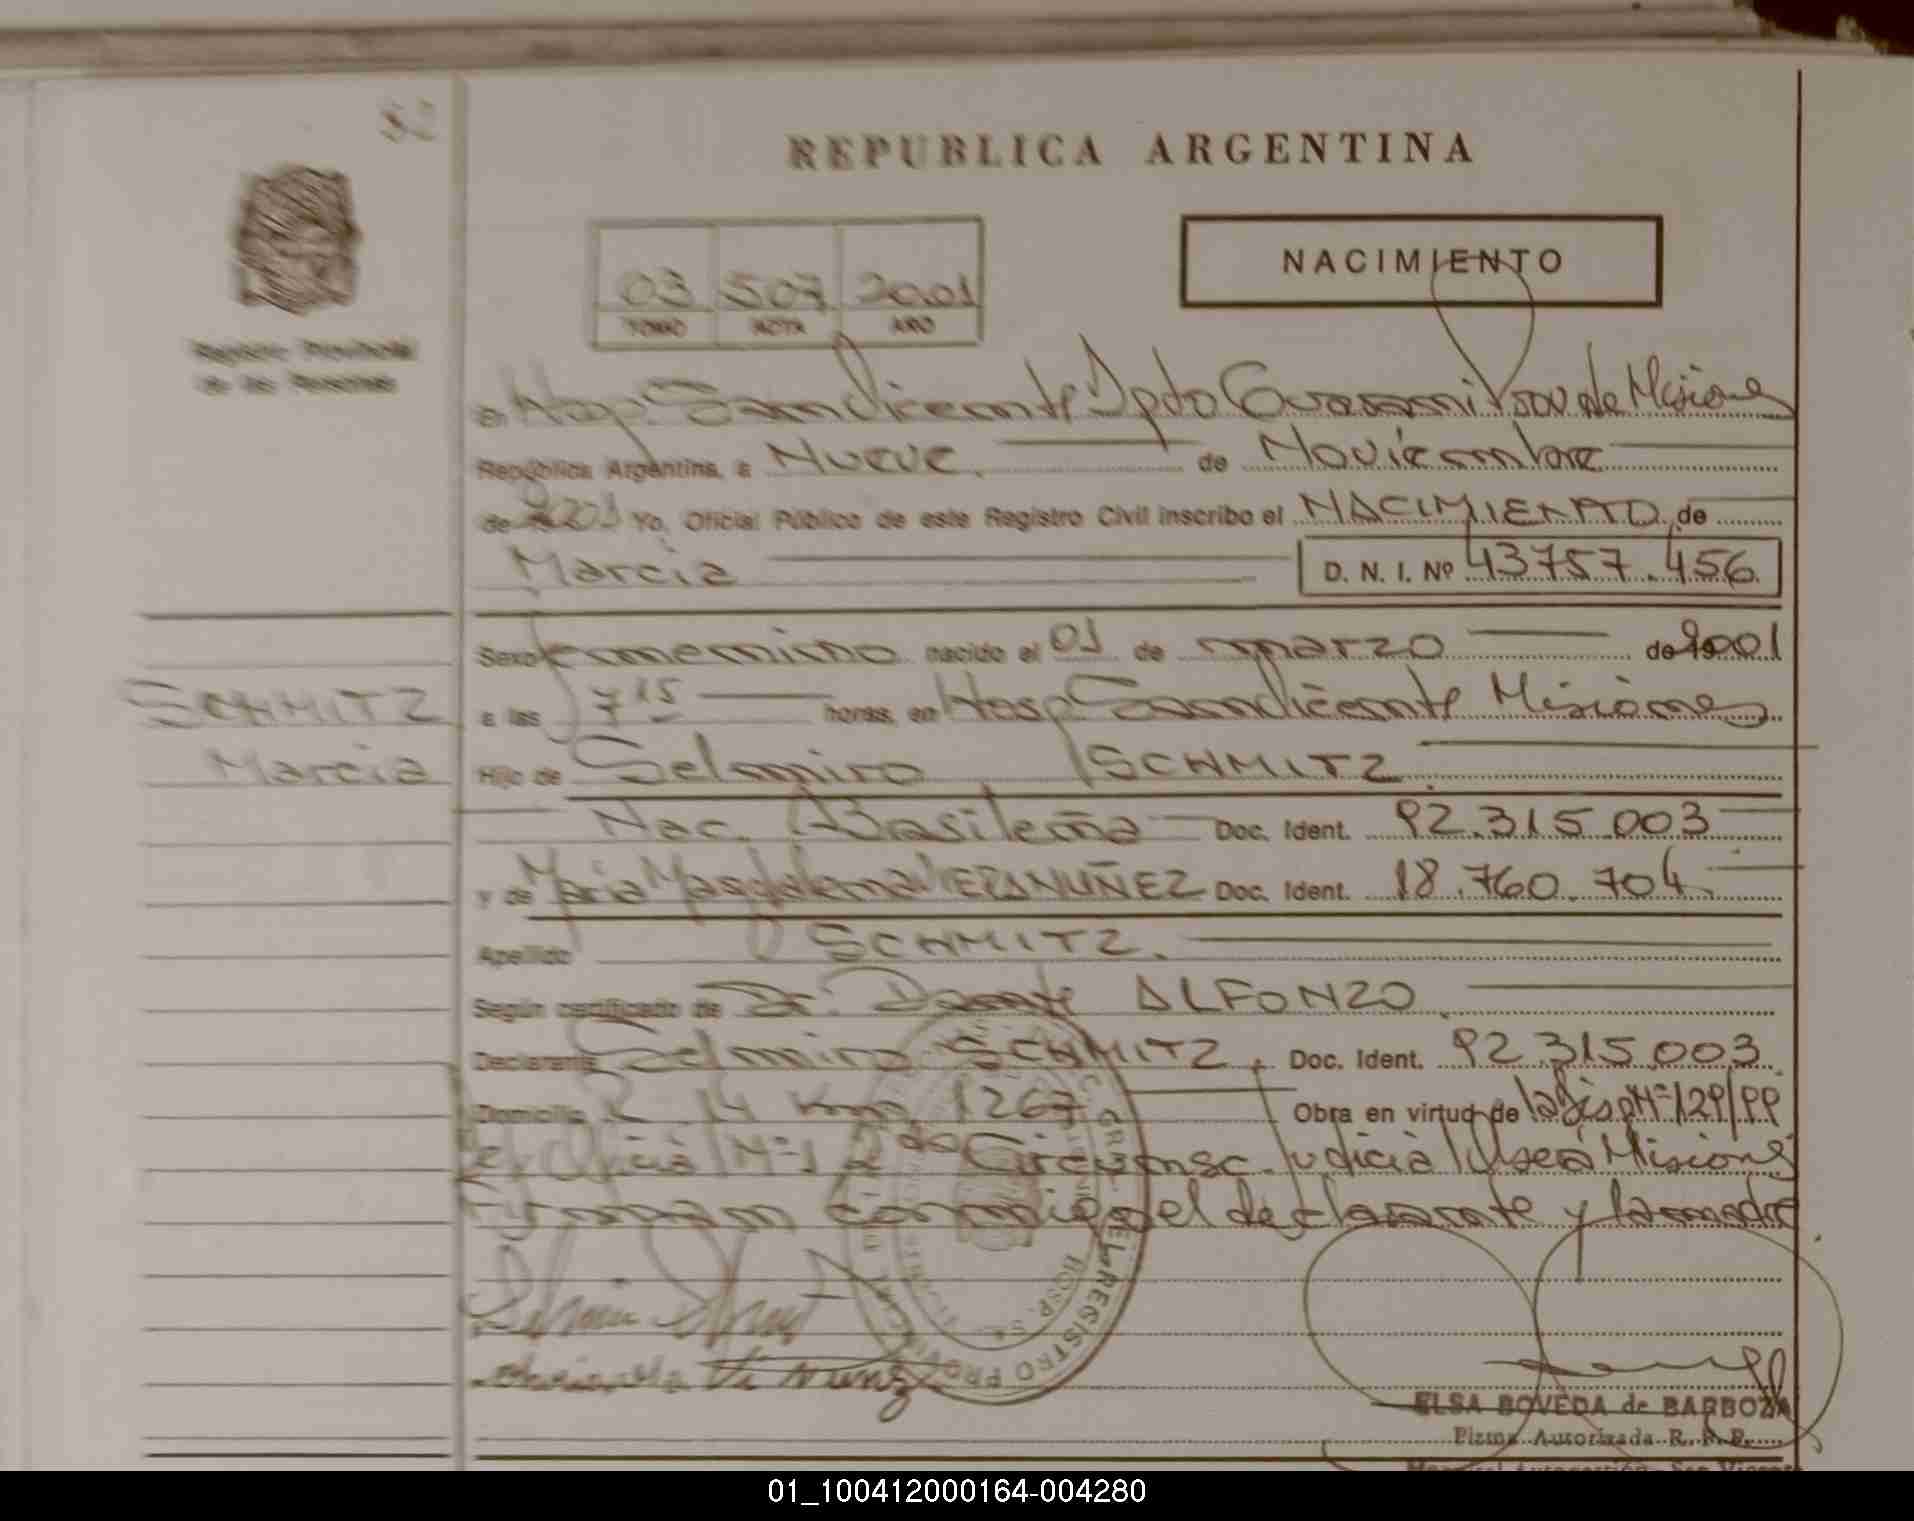 82
REPUBLICA ARGENTINA
NACIMIENTO
03 507 2001
TOMO ACTA AÑO
Registro Provincial
de las Personas
En Hosp. San Vicente Dpto Guarani Prov de Misiones
República Argentina, a Nueve de Noviembre
de 2001 Yo, Oficial Público de este Registro Civil inscribo el NACIMIENTO de
Marcia D. N. I. Nº 43757.456
Sexo femenino nacido el 01 de marzo de 2001
SCHMITZ
Marcia
a las 7 15 horas, en Hosp San Vicente Misiones
Hijo de Selmiro SCHMITZ
Nac. Brasileña Doc. Ident. 92.315.003
y de Maria Magdalena VERA NUÑEZ Doc. Ident. 18.760.704
Apellido SCHMITZ.
Según certificado de Dr. Dante ALFONZO
Declarante Selmiro SCHMITZ. Doc. Ident. 92.315.003
Domicilio R 14 Km 1267 Obra en virtud de la Disp Nº 129/99
Nº 1 2da Circunsc. Judicial Misiones
Firman conmigo el declarante y la madre
ELSA BOVEDA de BARBOZA
Firma Autorizada R. P. P.
01_100412000164-004280